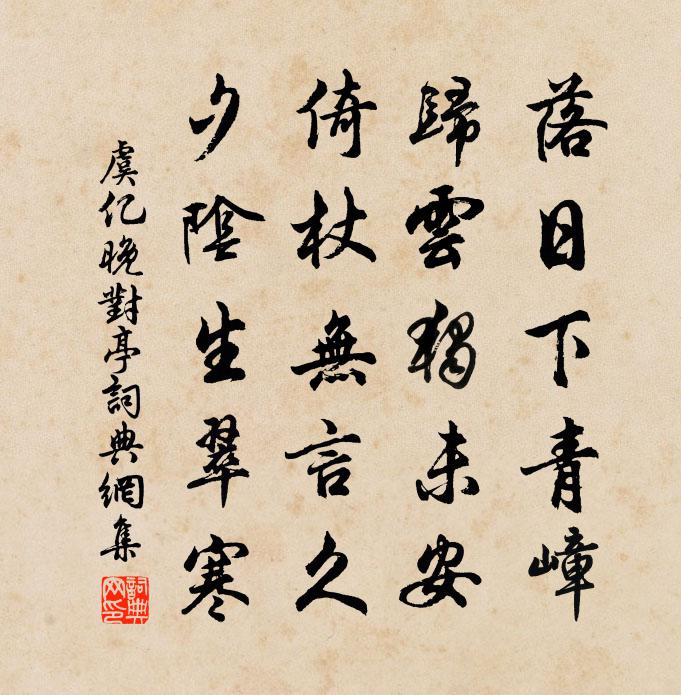 落日下青嶂
歸雲獨未安
倚杖無言久
夕陰生翠寒
虞仡晚對亭詞典網集
詞典網印